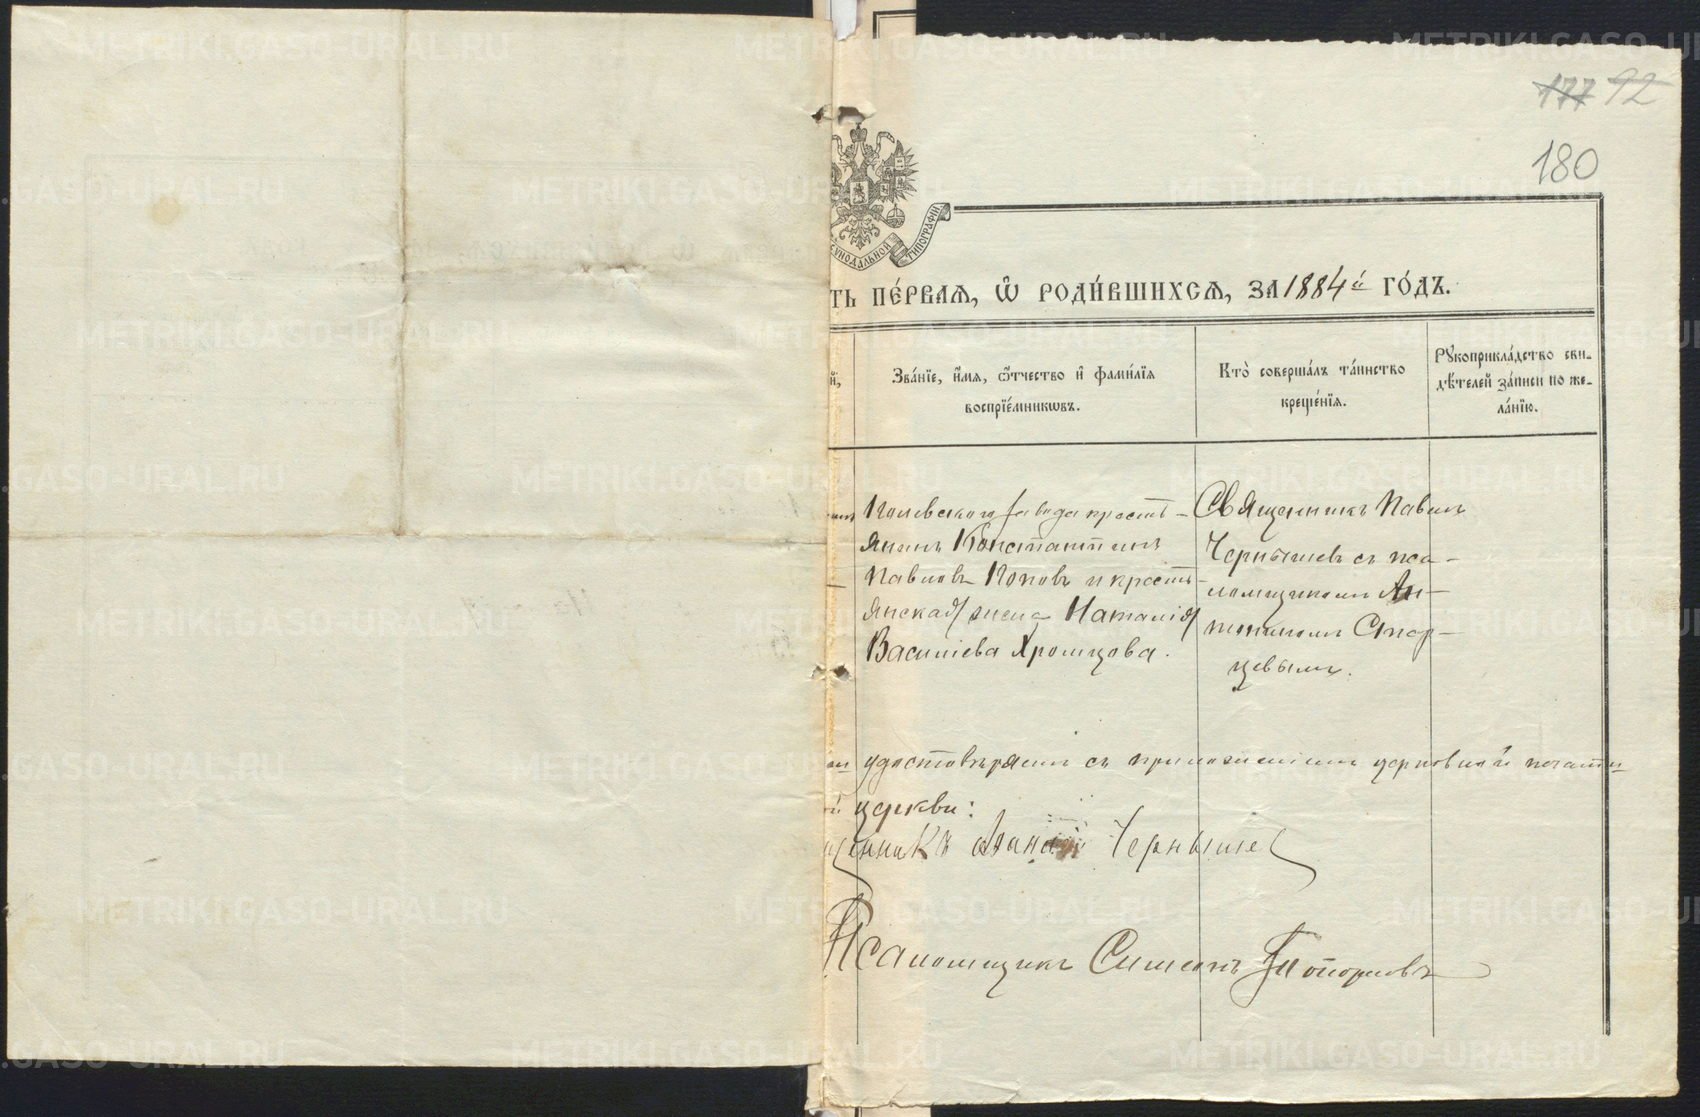 177 92
180
СѴНОДАЛЬНОЙ ТИПОГРАФІИ.
ТЬ ПЕ́РВАѦ, Ѽ РОДИ́ВШИХСѦ, ЗА 1884й ГО́ДЪ.
й,
Зва́нїе, и́мѧ, ѻ҆́тчество и҆ фамѝлїѧ
воспрїе́мникѡвъ.
Кто̀ соверша́лъ та́инство
креще́нїѧ.
Рꙋкоприкла́дство сви-
дѣ́телей за́писи по же-
ла́нїю.
Полевскаго завода кресть-
янинъ Константинъ
Павловъ Поповъ и кресть-
янская жена Наталія
Василіева Хромцова.
Священникъ Павелъ
Чернышевъ съ пса-
ломщикомъ Ан-
тониномъ Стар-
цевымъ.
удостовѣряемъ съ приложеніемъ церковной печати
церкви:
Чернышев
Псаломщикъ Симеонъ Топорковъ
METRIKI.GASO-URAL.RU